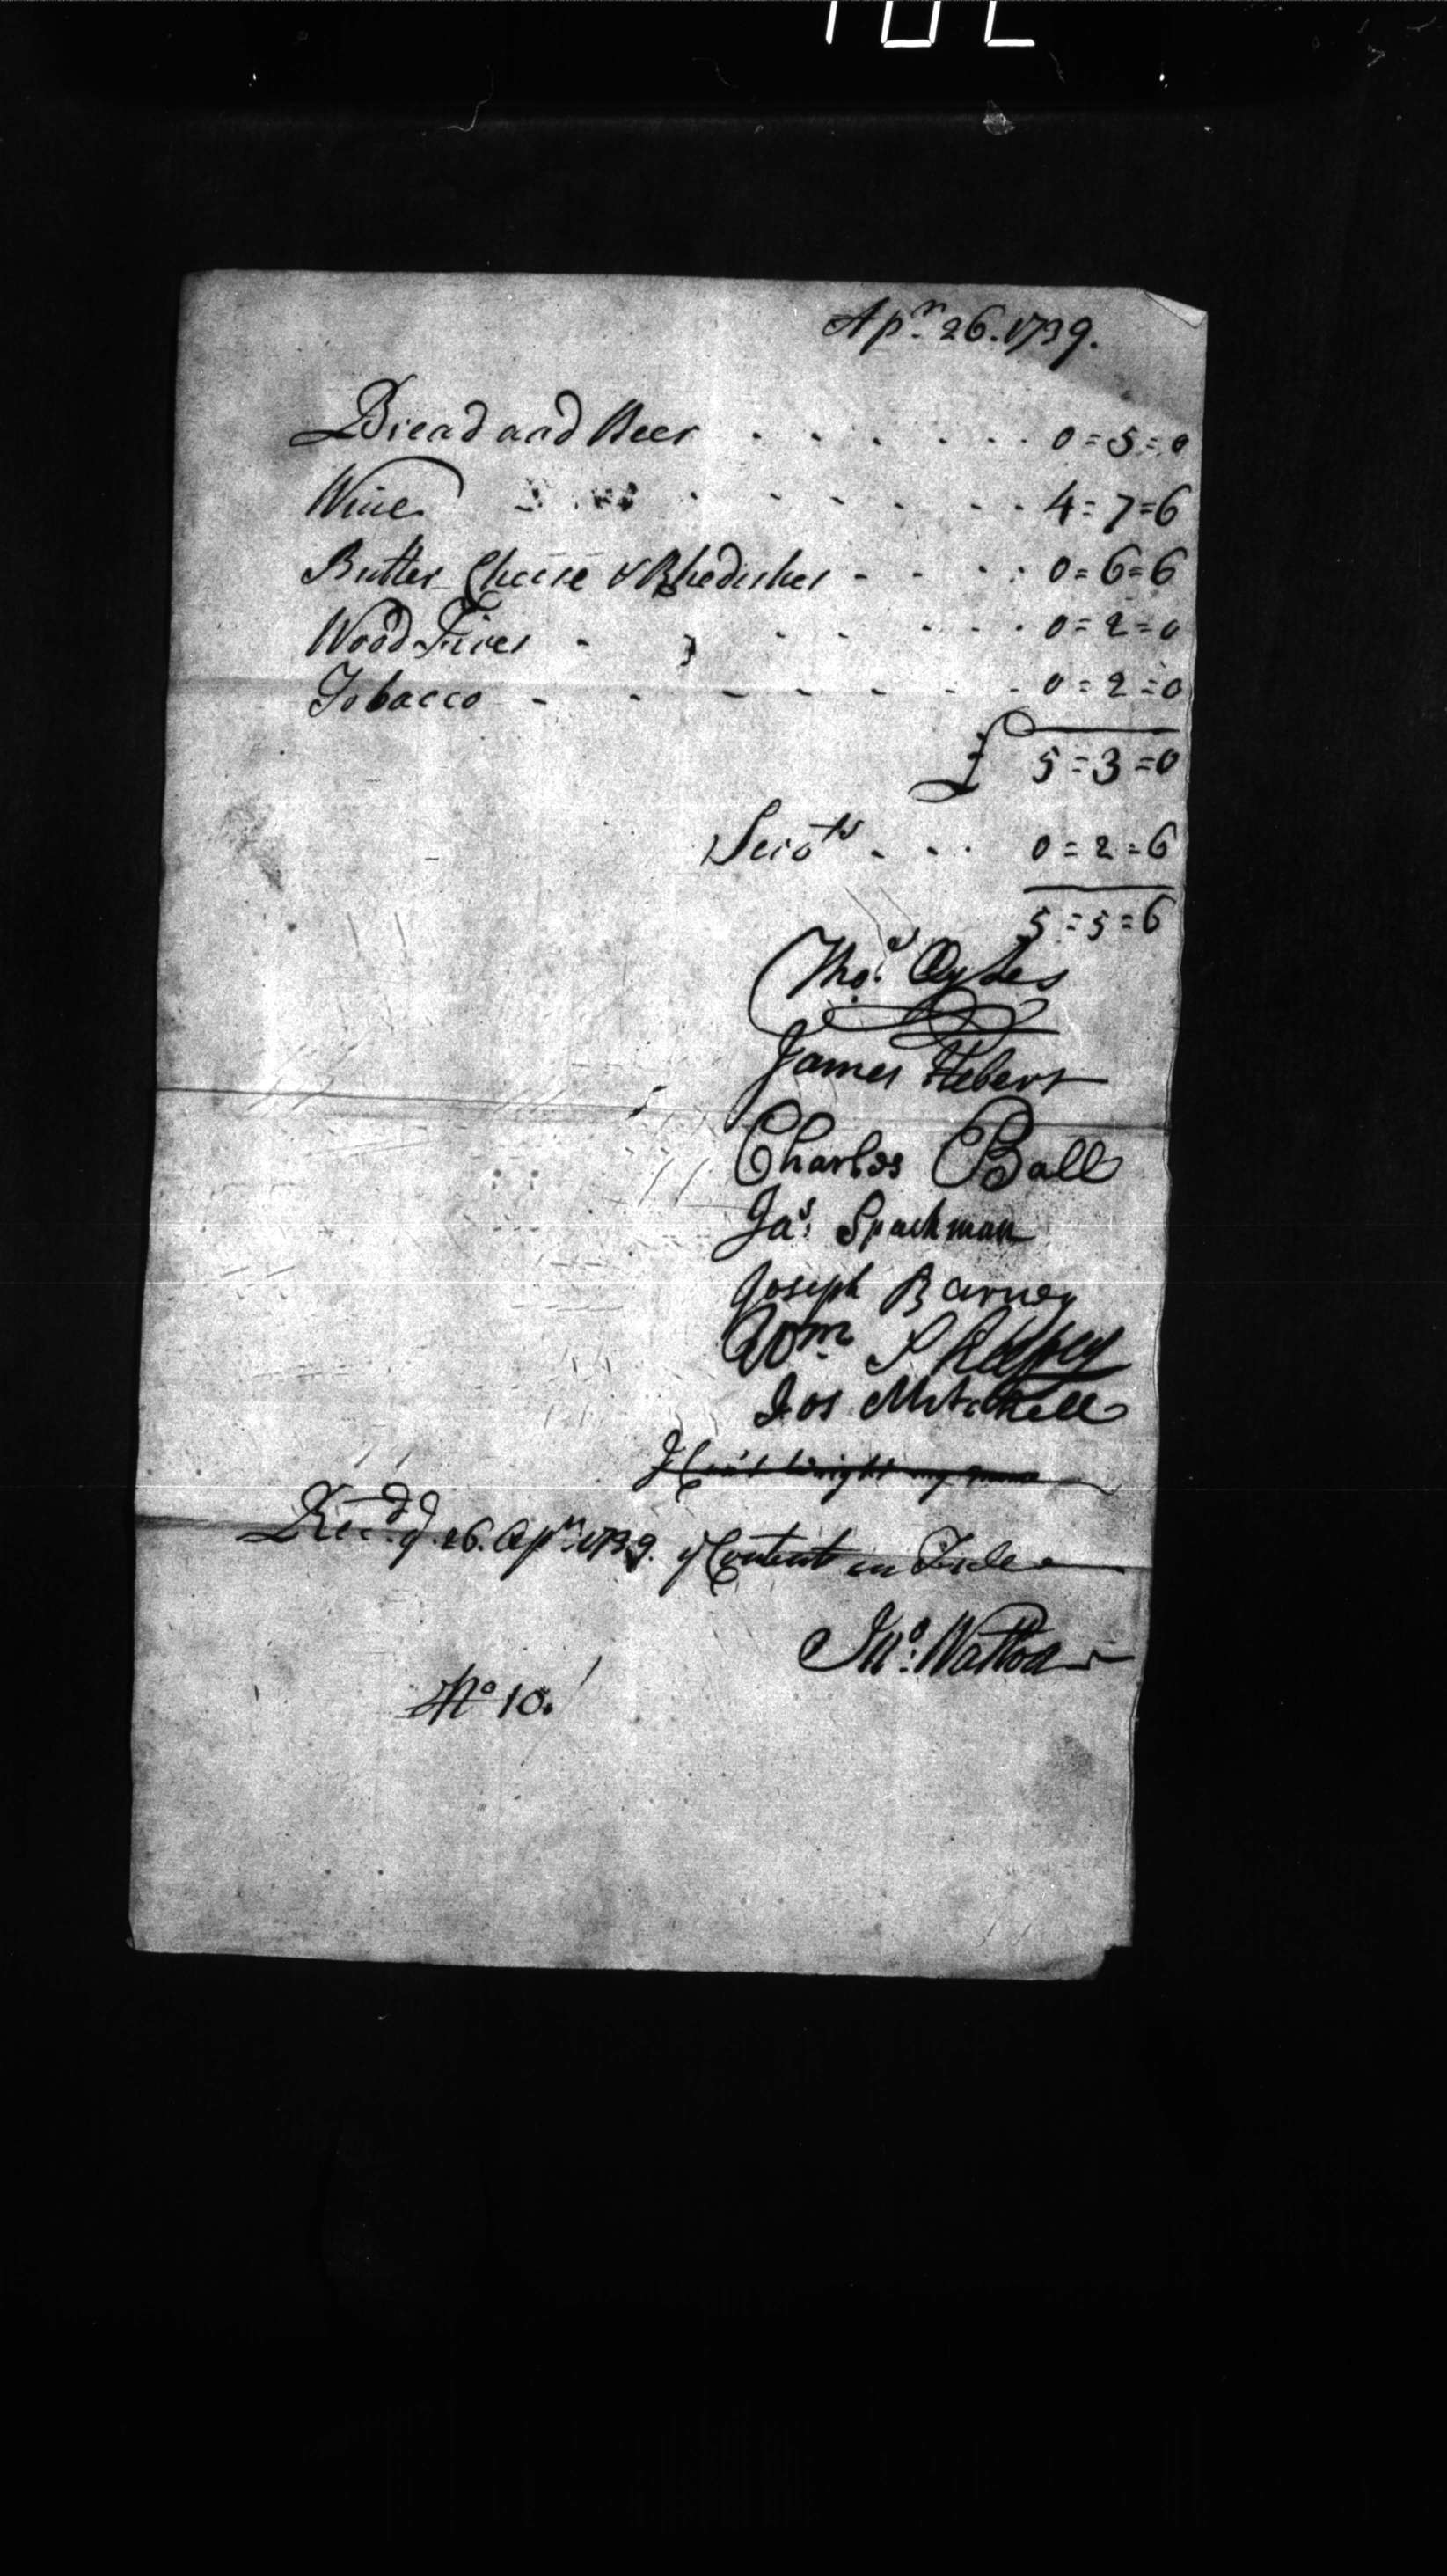 Apr. 26. 1739.
Bread and Beer . . . . . . . 0=5=0
Wine . . . . . . . 4=7=6
Butter Cheese & Rhedishes - - . . 0=6=6
Wood Fires - . . . . . . 0=2=0
Tobacco - - - - - - - - - 0=2=0
£ 5=3=0
Servts - . . 0=2=6
5=5=6
Thos.
James Hebert
Charles Ball
Jas: Spackman
Joseph Barney
Wm
Jos Mitchell
Recd. 26. Apr. 1739. ye Contents in
Jno: Watton
No 10.